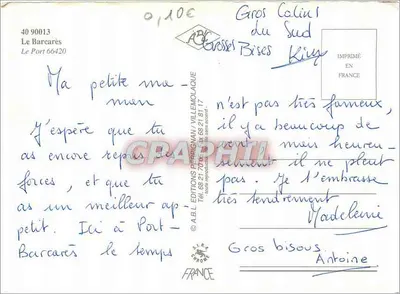 40 90013
Le Barcarès
Le Port 66420
0,10€
ABL
Gros Calins
du Sud
Grosses Bises
IMPRIMÉ
EN
FRANCE
Ma petite ma-
man
J'espère que tu
as encore repris des
forces, et que tu
as un meilleur ap-
petit. Ici à Port-
Barcarès le temps
© A.B.L. EDITIONS PERPIGNAN / VILLEMOLAQUE
Tél. 68 21 70 68 21 81 17
n'est pas très fameux,
il y a beaucoup de
vent mais heureu-
sement il ne pleut
pas. Je t'embrasse
très tendrement
Madeleine
Gros bisous
Antoine
FRANCE
GRAPHIL
.com